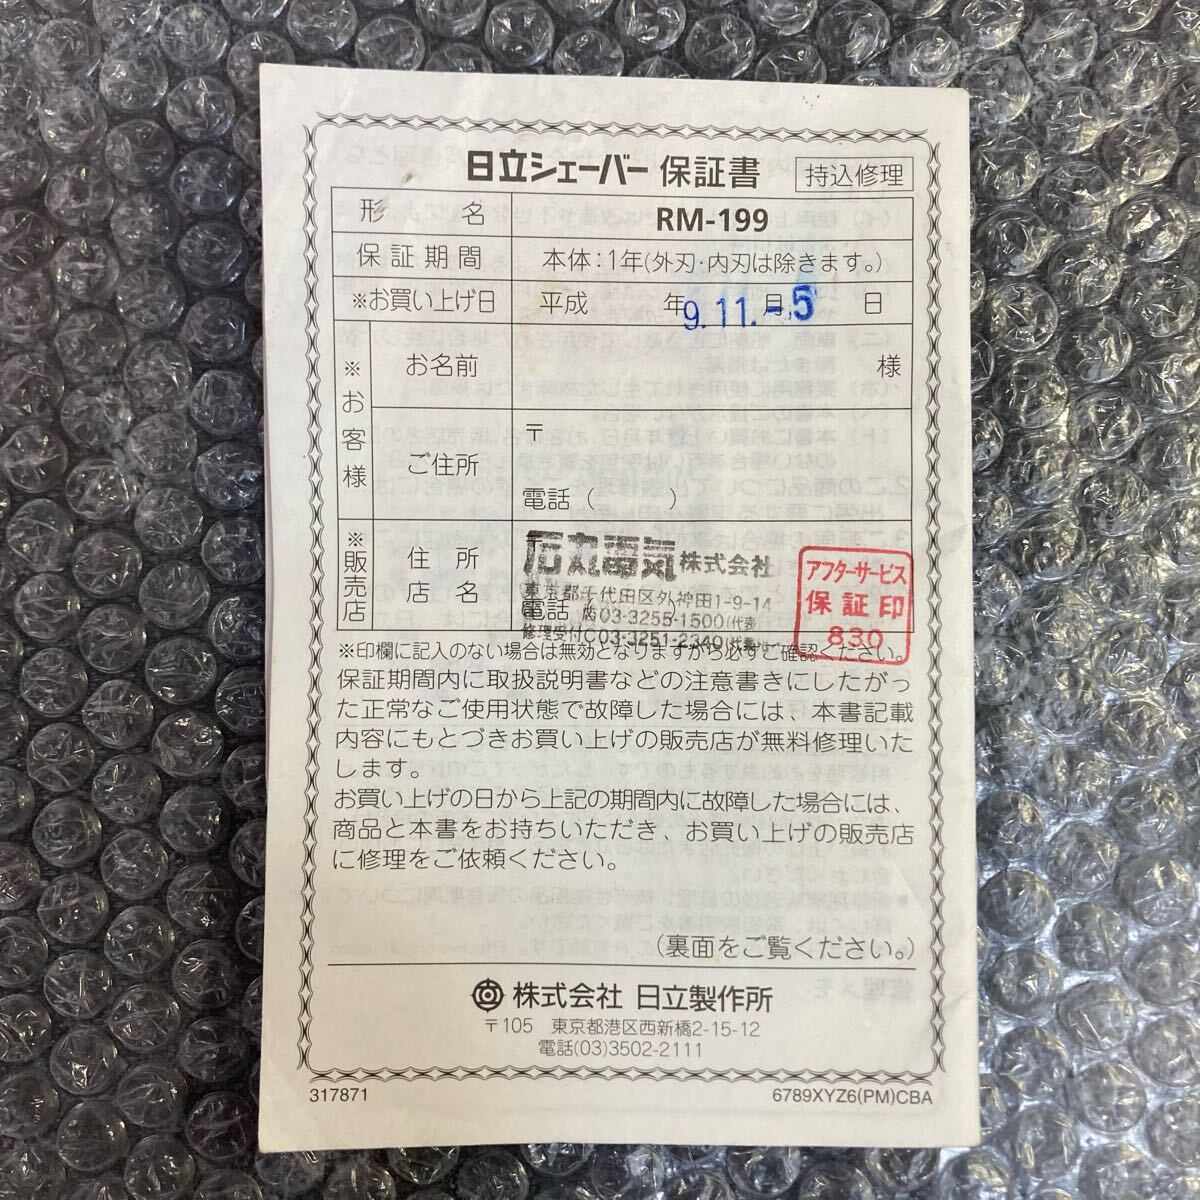 日立シェーバー 保証書 持込修理
形名 RM-199
保証期間 本体：1年(外刃・内刃は除きます。)
※お買い上げ日 平成 年 月 日
9.11.-5
※お客様
お名前 様
ご住所 〒
電話 ( )
※販売店
住所
店名
電話
石丸電気株式会社
東京都千代田区外神田1-9-14
03-3255-1500(代表)
修理受付 03-3251-2340(代表)
アフターサービス
保証印
830
※印欄に記入のない場合は無効となりますから必ずご確認ください。
保証期間内に取扱説明書などの注意書きにしたがっ
た正常なご使用状態で故障した場合には、本書記載
内容にもとづきお買い上げの販売店が無料修理いた
します。
お買い上げの日から上記の期間内に故障した場合には、
商品と本書をお持ちいただき、お買い上げの販売店
に修理をご依頼ください。
(裏面をご覧ください。)
株式会社 日立製作所
〒105 東京都港区西新橋2-15-12
電話(03)3502-2111
317871 6789XYZ6(PM)CBA